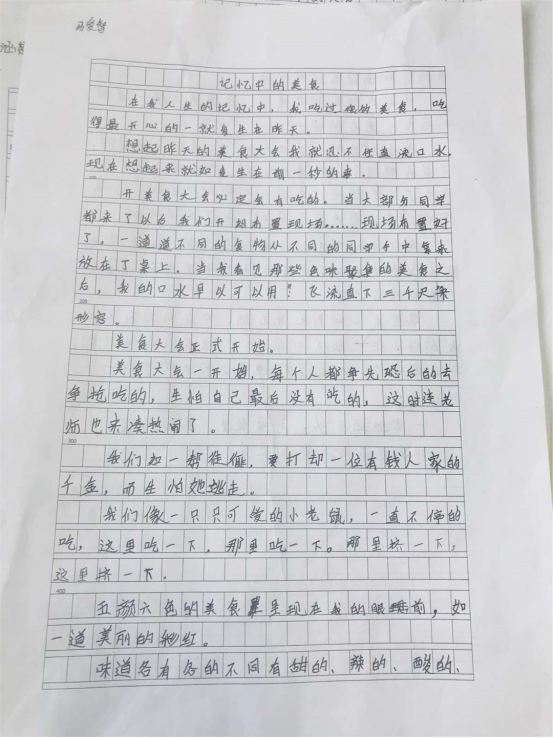 记忆中的美食
在我人生的记忆中，我吃过很多美食，吃
得最开心的一就发生在昨天。
想起昨天的美食大会我就迅不住直流口水。
现在想起来就如发生在期一秒的事。
开美食大会必定会有吃的。当大部分同学
都来了以后我们开始布置现场……现场布置好
了，一道道不同的食物从不同的同学手中拿来
放在了桌上。当我看见那些色味聚集的美食之
后，我的口水早以可以用：飞流直下三千尺来
形容。
美食大会正式开始。
美食大会一开始，每个人都争先恐后的去
争抢吃的，生怕自己最后没有吃的，这时连老
师也来凑热闹了。
300
我们如一帮徒俄，要打却一位有钱人家的
千金，而生怕她逃走。
我们像一只只可爱的小老鼠，一直不停的
吃，这里吃一下，那里吃一下。那里挤一下，
这里挤一下。
400
五颜六色的美食呈现在我的眼睛前，如
一道美丽的彩虹。
味道各有各的不同有甜的、辣的、酸的、